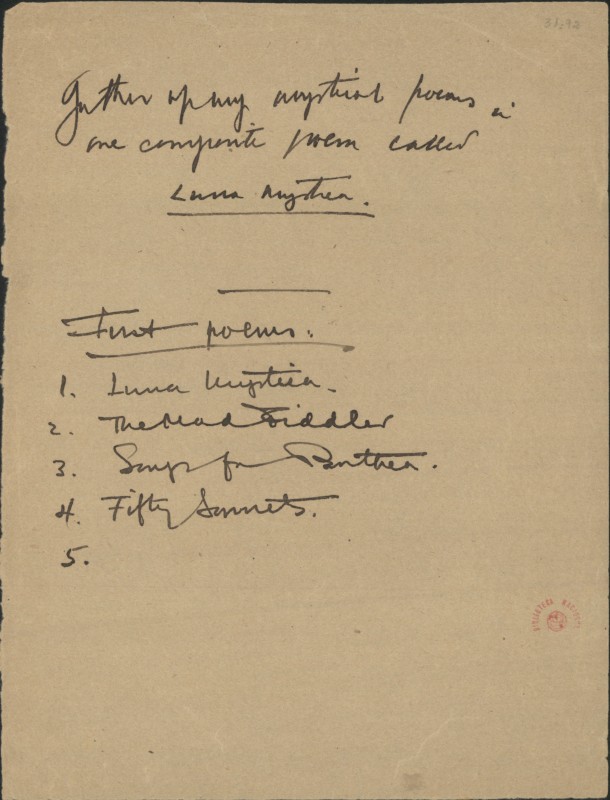 31-92
Gather up my mystical poems in
one composite poem called
Luna Mystica.
First poems:
1. Luna Mystica.
2. The Mad Fiddler
3. Songs for Panthea.
4. Fifty Sonnets.
5.
BIBLIOTECA NACIONAL